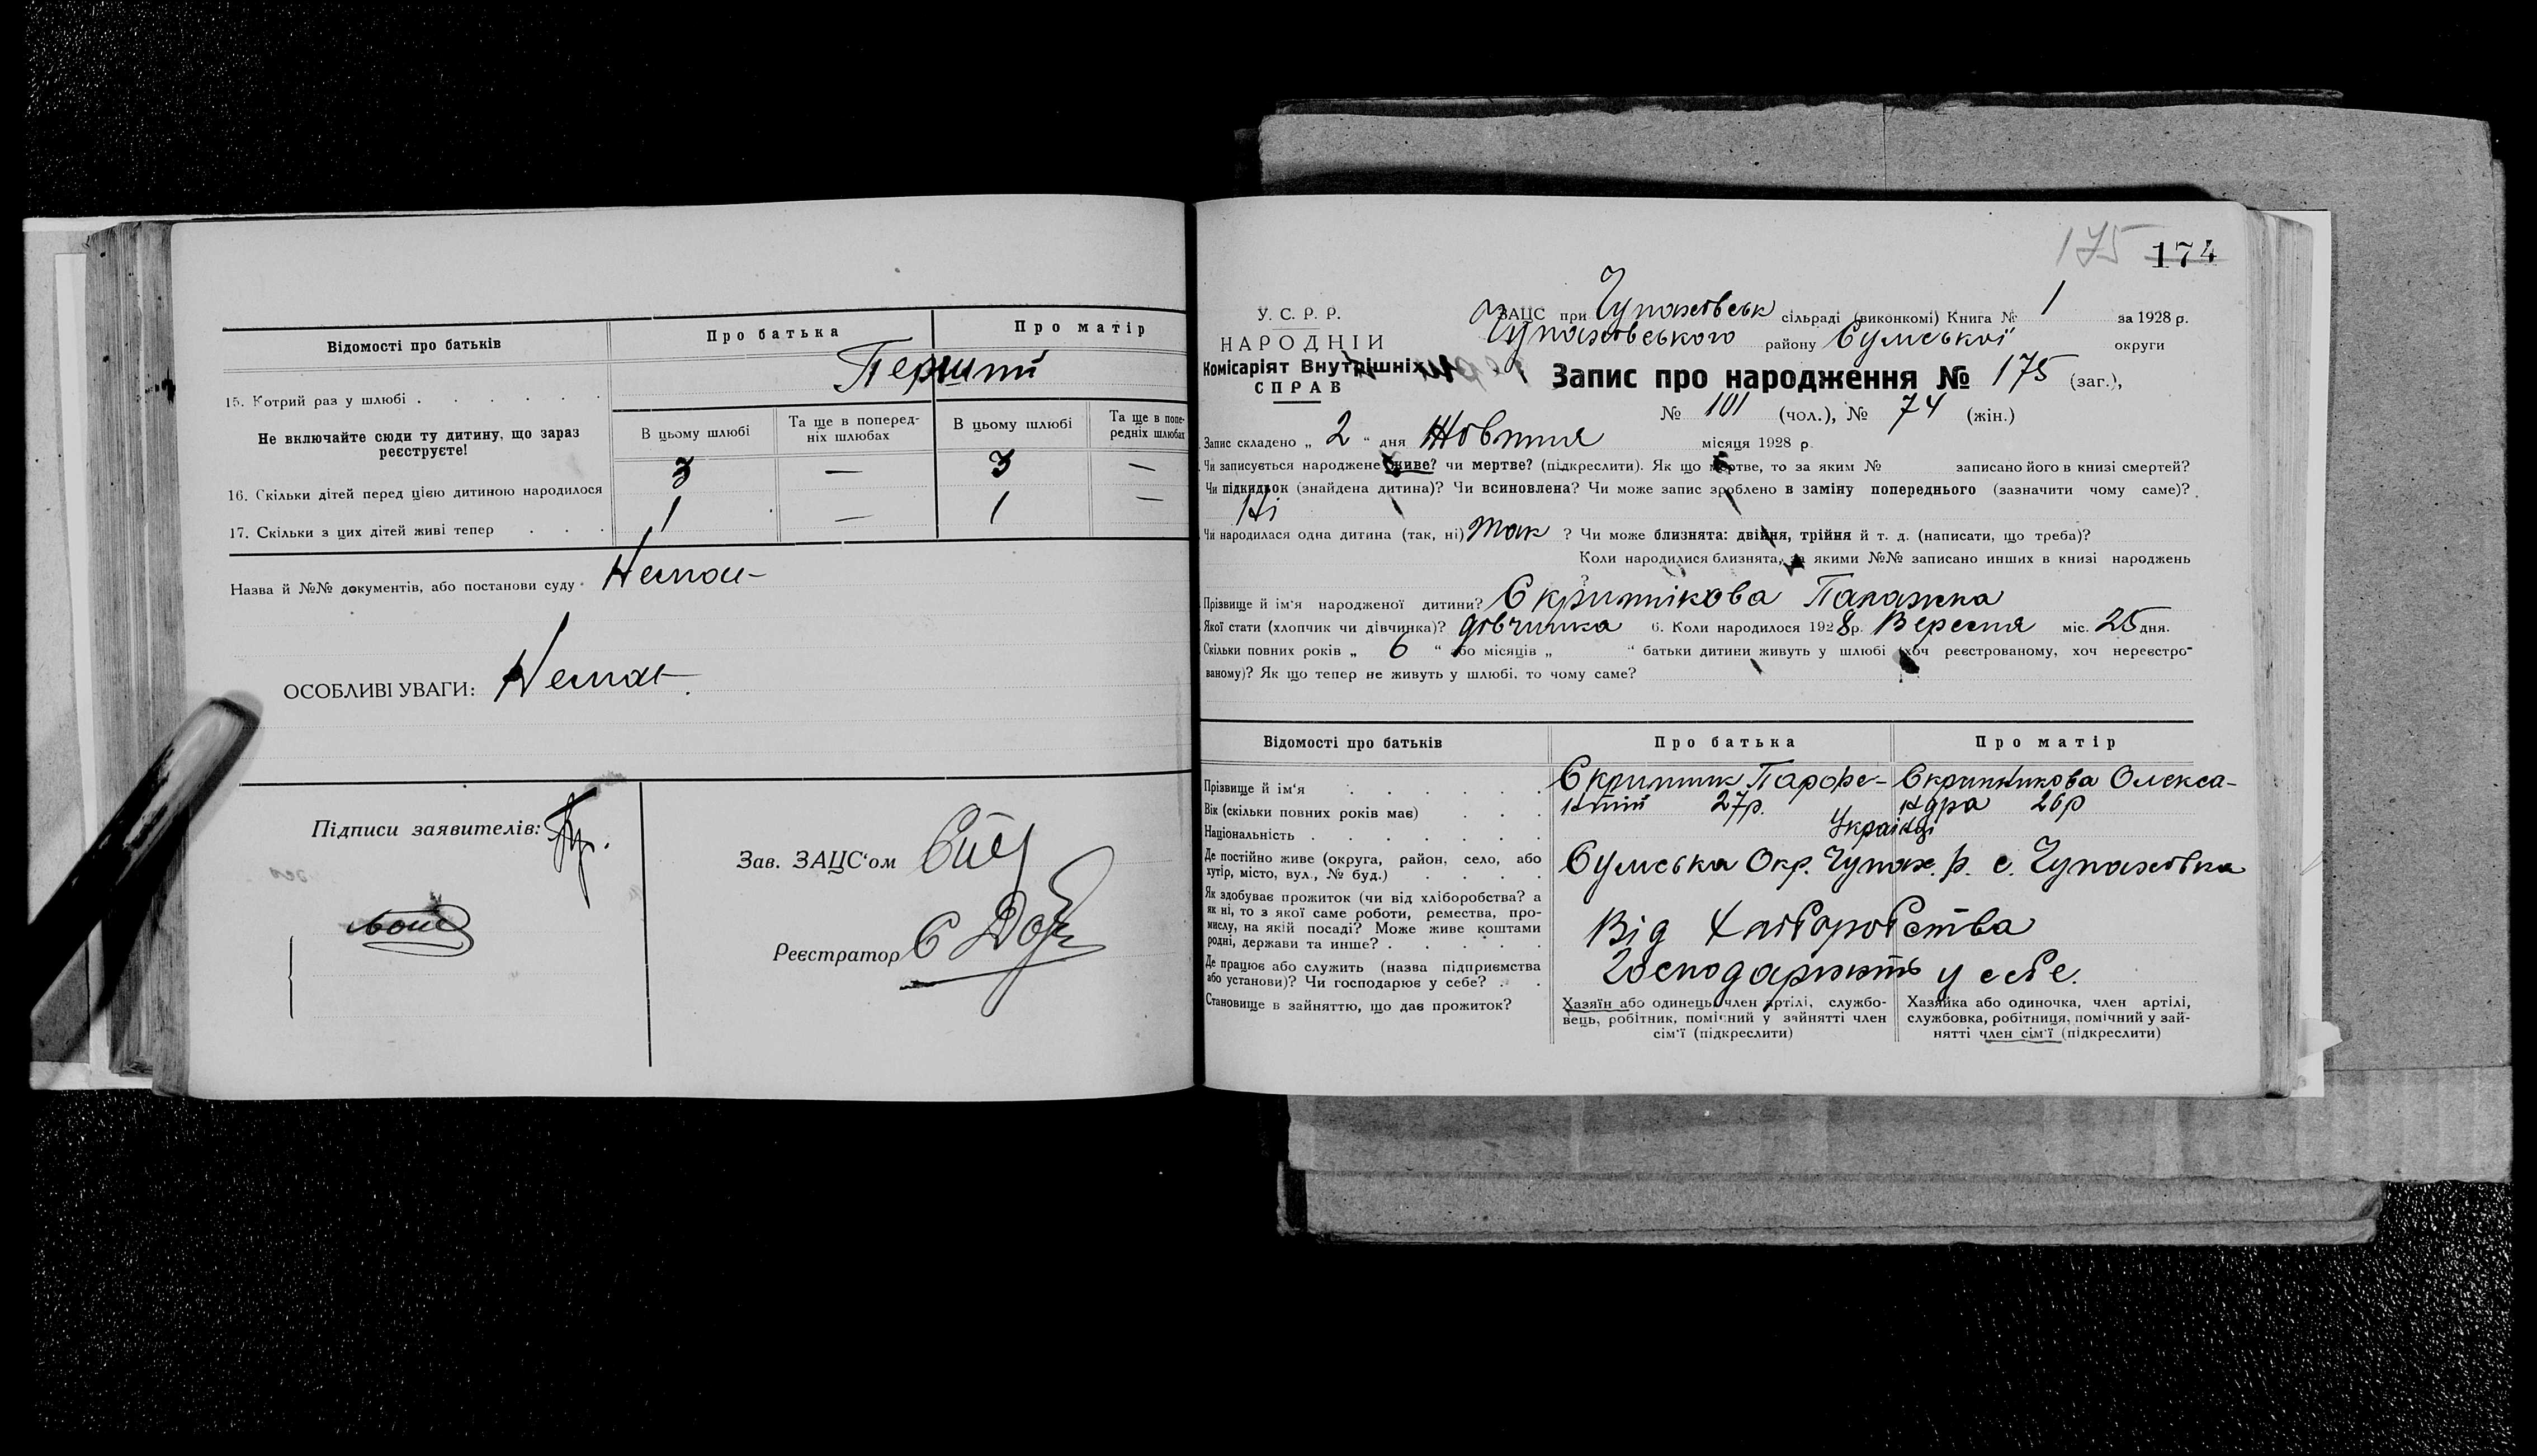 Відомості про батьків
Про батька
Про матір
15. Котрий раз у шлюбі . . . . . .
Перший
Не включайте сюди ту дитину, що зараз
реєструєте!
В цьому шлюбі
Та ще в поперед-
ніх шлюбах
В цьому шлюбі
Та ще в попе-
редніх шлюбах
16. Скільки дітей перед цією дитиною народилося
3 — 3 —
17. Скільки з цих дітей живі тепер . . .
1 — 1 —
Назва й №№ документів, або постанови суду Немає
ОСОБЛИВІ УВАГИ: Немає.
Підписи заявителів:
Зав. ЗАЦС'ом
Реєстратор
175 174
У. С. Р. Р.
НАРОДНІЙ
Комісаріят Внутрішніх
СПРАВ
ЗАЦС при Чупахівськ сільраді (виконкомі) Книга № 1 за 1928 р.
Чупахівського району Сумської округи
Запис про народження № 175 (заг.),
№ 101 (чол.), № 74 (жін.)
Запис складено „ 2 “ дня Жовтня місяця 1928 р.
Чи записується народжене живе? чи мертве? (підкреслити). Як що мертве, то за яким № записано його в книзі смертей?
Чи підкидьок (знайдена дитина)? Чи всиновлена? Чи може запис зроблено в заміну попереднього (зазначити чому саме)?
Ні
Чи народилася одна дитина (так, ні) Так ? Чи може близнята: двійня, трійня й т. д. (написати, що треба)?
Коли народилися близнята, за якими №№ записано инших в книзі народжень
?
Прізвище й ім'я народженої дитини? Скрипнікова Паражка
Якої стати (хлопчик чи дівчинка)? дівчинка 6. Коли народилося 1928 р. Вересня міс. 25 дня.
Скільки повних років „ 6 “ або місяців „ “ батьки дитини живуть у шлюбі (хоч реєстрованому, хоч нереєстро-
ваному)? Як що тепер не живуть у шлюбі, то чому саме?
Відомості про батьків
Про батька
Про матір
Прізвище й ім'я . . . . . .
Скрипник Парфе-
Скрипникова Олекса-
Вік (скільки повних років має) . . .
нтій 27р.
ндра 26р
Національність . . . . . . .
Українці
Де постійно живе (округа, район, село, або
хутір, місто, вул., № буд.) . . . .
Сумська Окр. Чупах. р. с. Чупахівка
Як здобуває прожиток (чи від хліборобства? а
як ні, то з якої саме роботи, ремества, про-
мислу, на якій посаді? Може живе коштами
родні, держави та инше? . . . . .
Від Хліборобства
Де працює або служить (назва підприємства
або установи)? Чи господарює у себе? . .
Господарюють у себе.
Становище в зайняттю, що дає прожиток?
Хазяїн або одинець, член артілі, службо-
вець, робітник, помічний у зайнятті член
сім'ї (підкреслити)
Хазяйка або одиночка, член артілі,
службовка, робітниця, помічний у зай-
нятті член сім'ї (підкреслити)